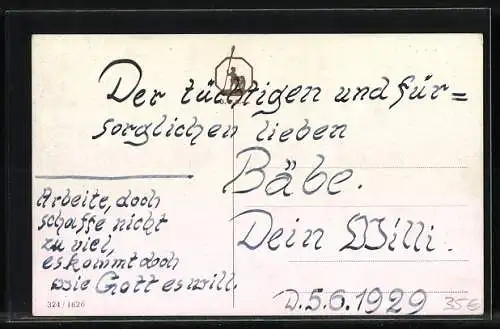 Der tüchtigen und für=
sorglichen lieben
Bäbe.
Dein Willi.
Arbeite, doch
schaffe nicht
zu viel,
es kommt doch
wie Gott es will.
D. 5.6.1929
324/1626
35€